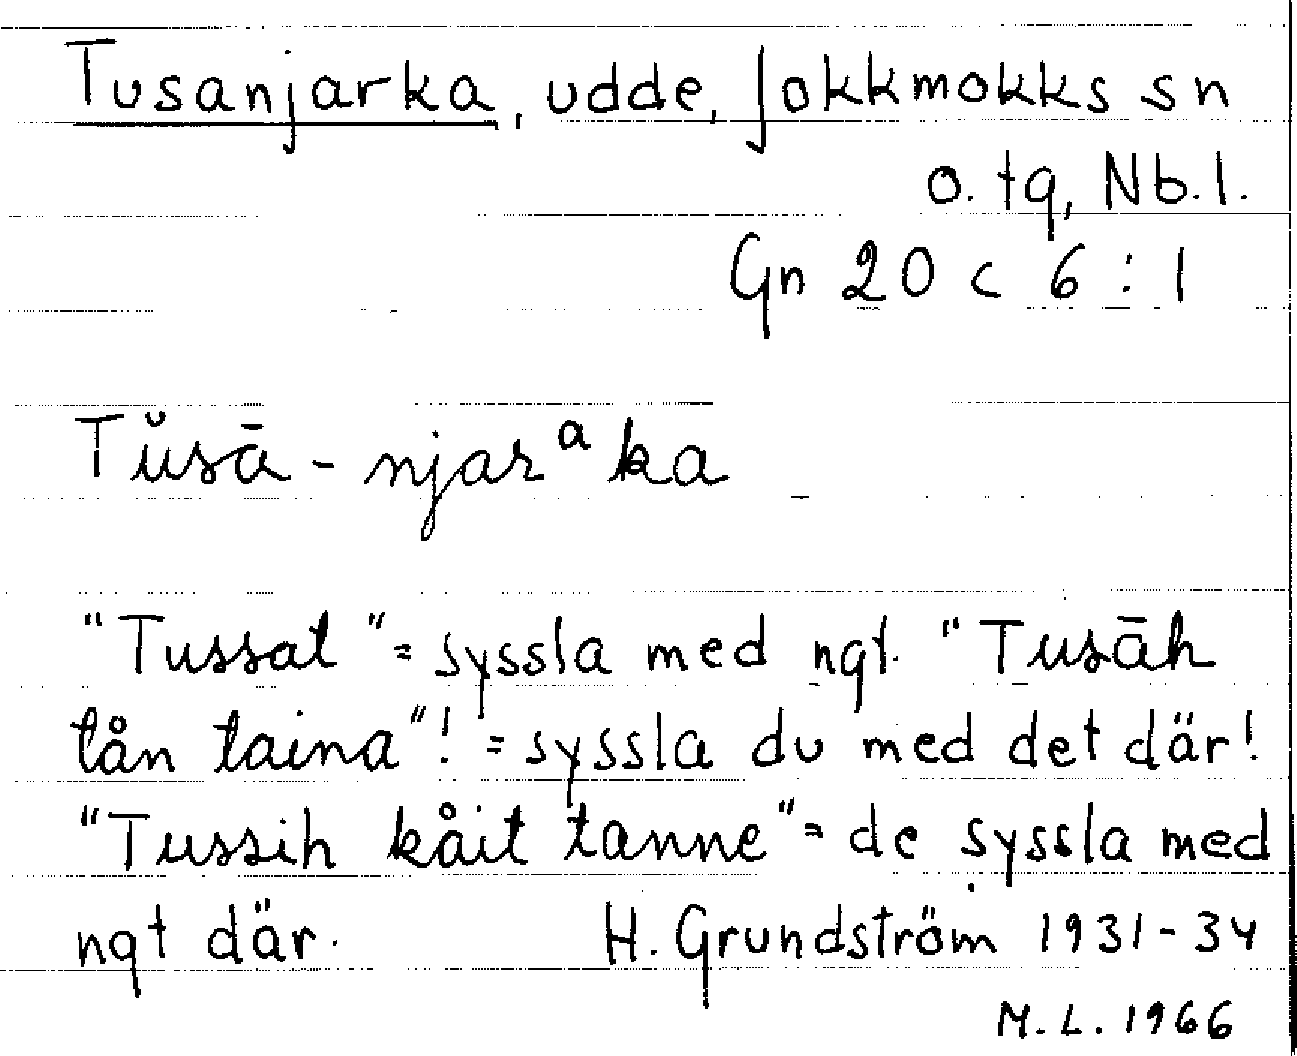 Tusanjarka, udde, Jokkmokks sn
o. tg, Nb.l.
Gn 20 c 6 : 1
Tŭsā - njarᵃka
"Tussat" = syssla med ngt. "Tusāh
tån taina"! = syssla du med det där!
"Tussih kåit tanne" = de syssla med
ngt där. H. Grundström 1931-34
M.L. 1966